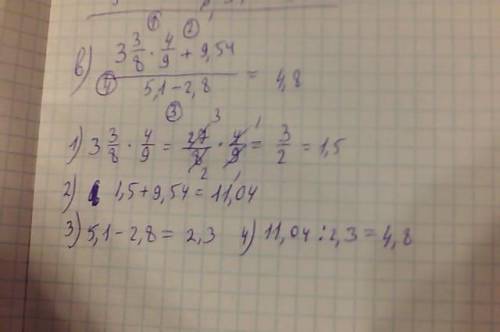 ① ②
3 3/8 · 4/9 + 9,54
в) ④ ————— = 4,8
5,1 - 2,8
③
1) 3 3/8 · 4/9 = 27/8 · 4/9 = 3/2 = 1,5
2) 1,5 + 9,54 = 11,04
3) 5,1 - 2,8 = 2,3 4) 11,04 : 2,3 = 4,8